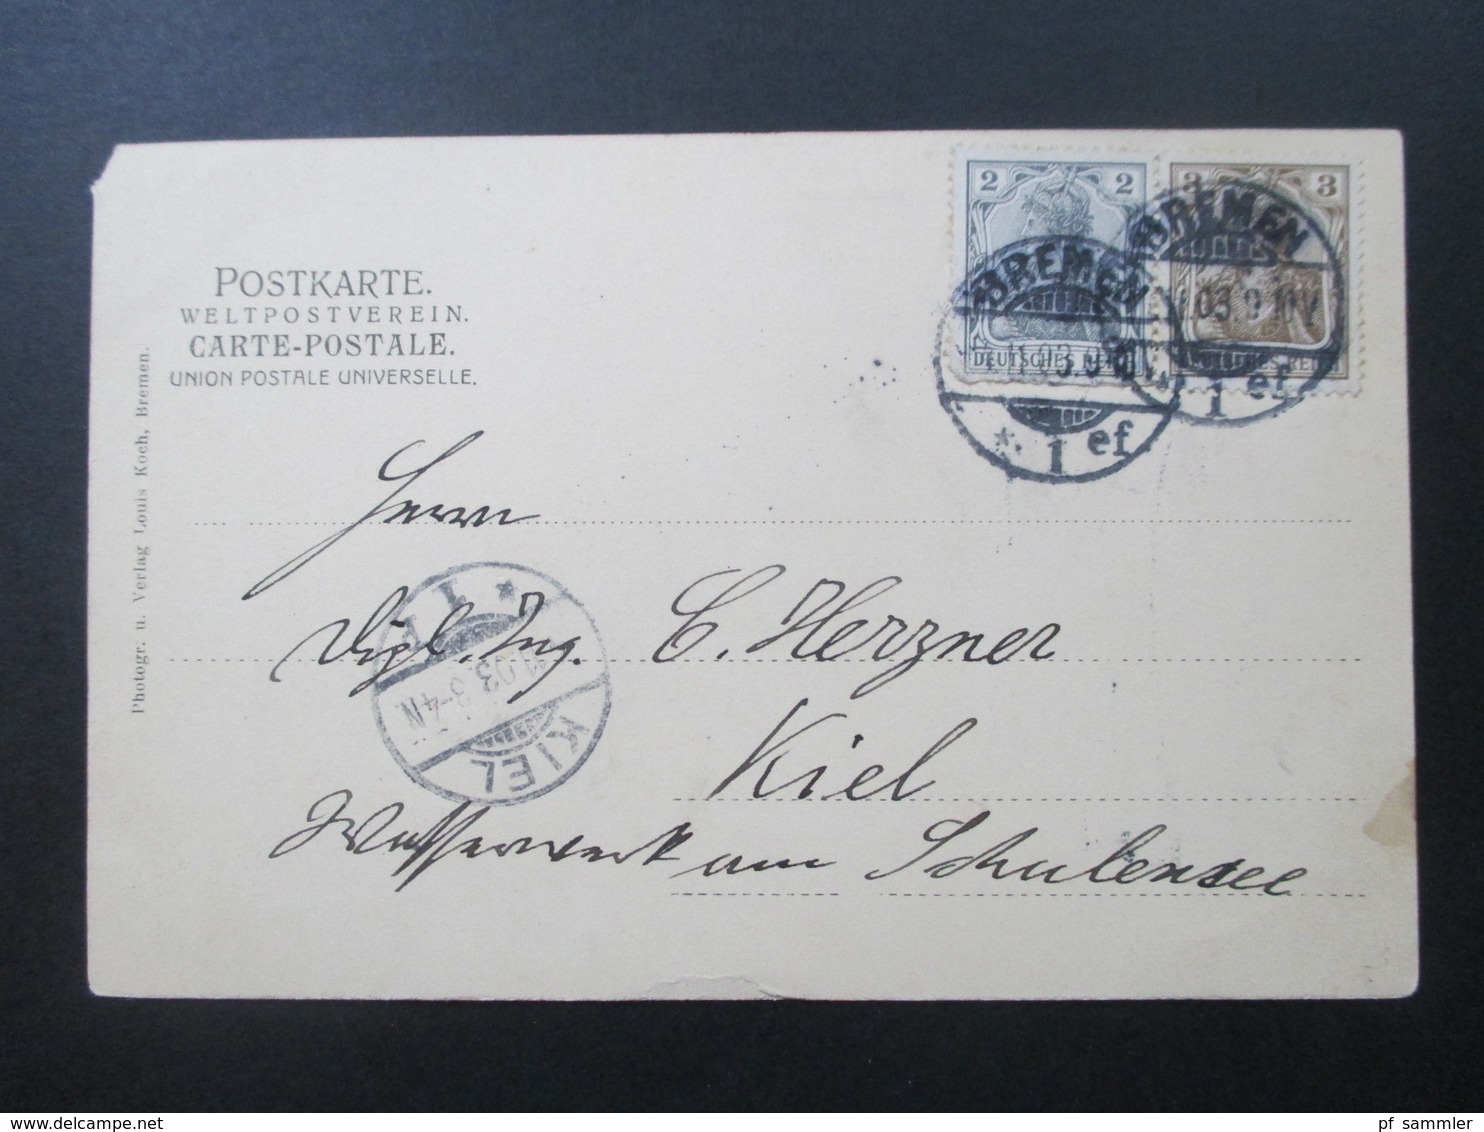 POSTKARTE.
WELTPOSTVEREIN.
CARTE-POSTALE.
UNION POSTALE UNIVERSELLE.
Photogr. u. Verlag Louis Koch, Bremen.
2 2
DEUTSCHES REICH
3 3
DEUTSCHES REICH
BREMEN
03.9-10V
* 1 ef
BREMEN
.03.9-10
*. 1 ef
Herrn
Dipl. Ing. C. Herzner
Kiel
Wasserwerk am Schulensee
KIEL
.03.3-4N
* 1 F
pf_sammler
www.delcampe.net